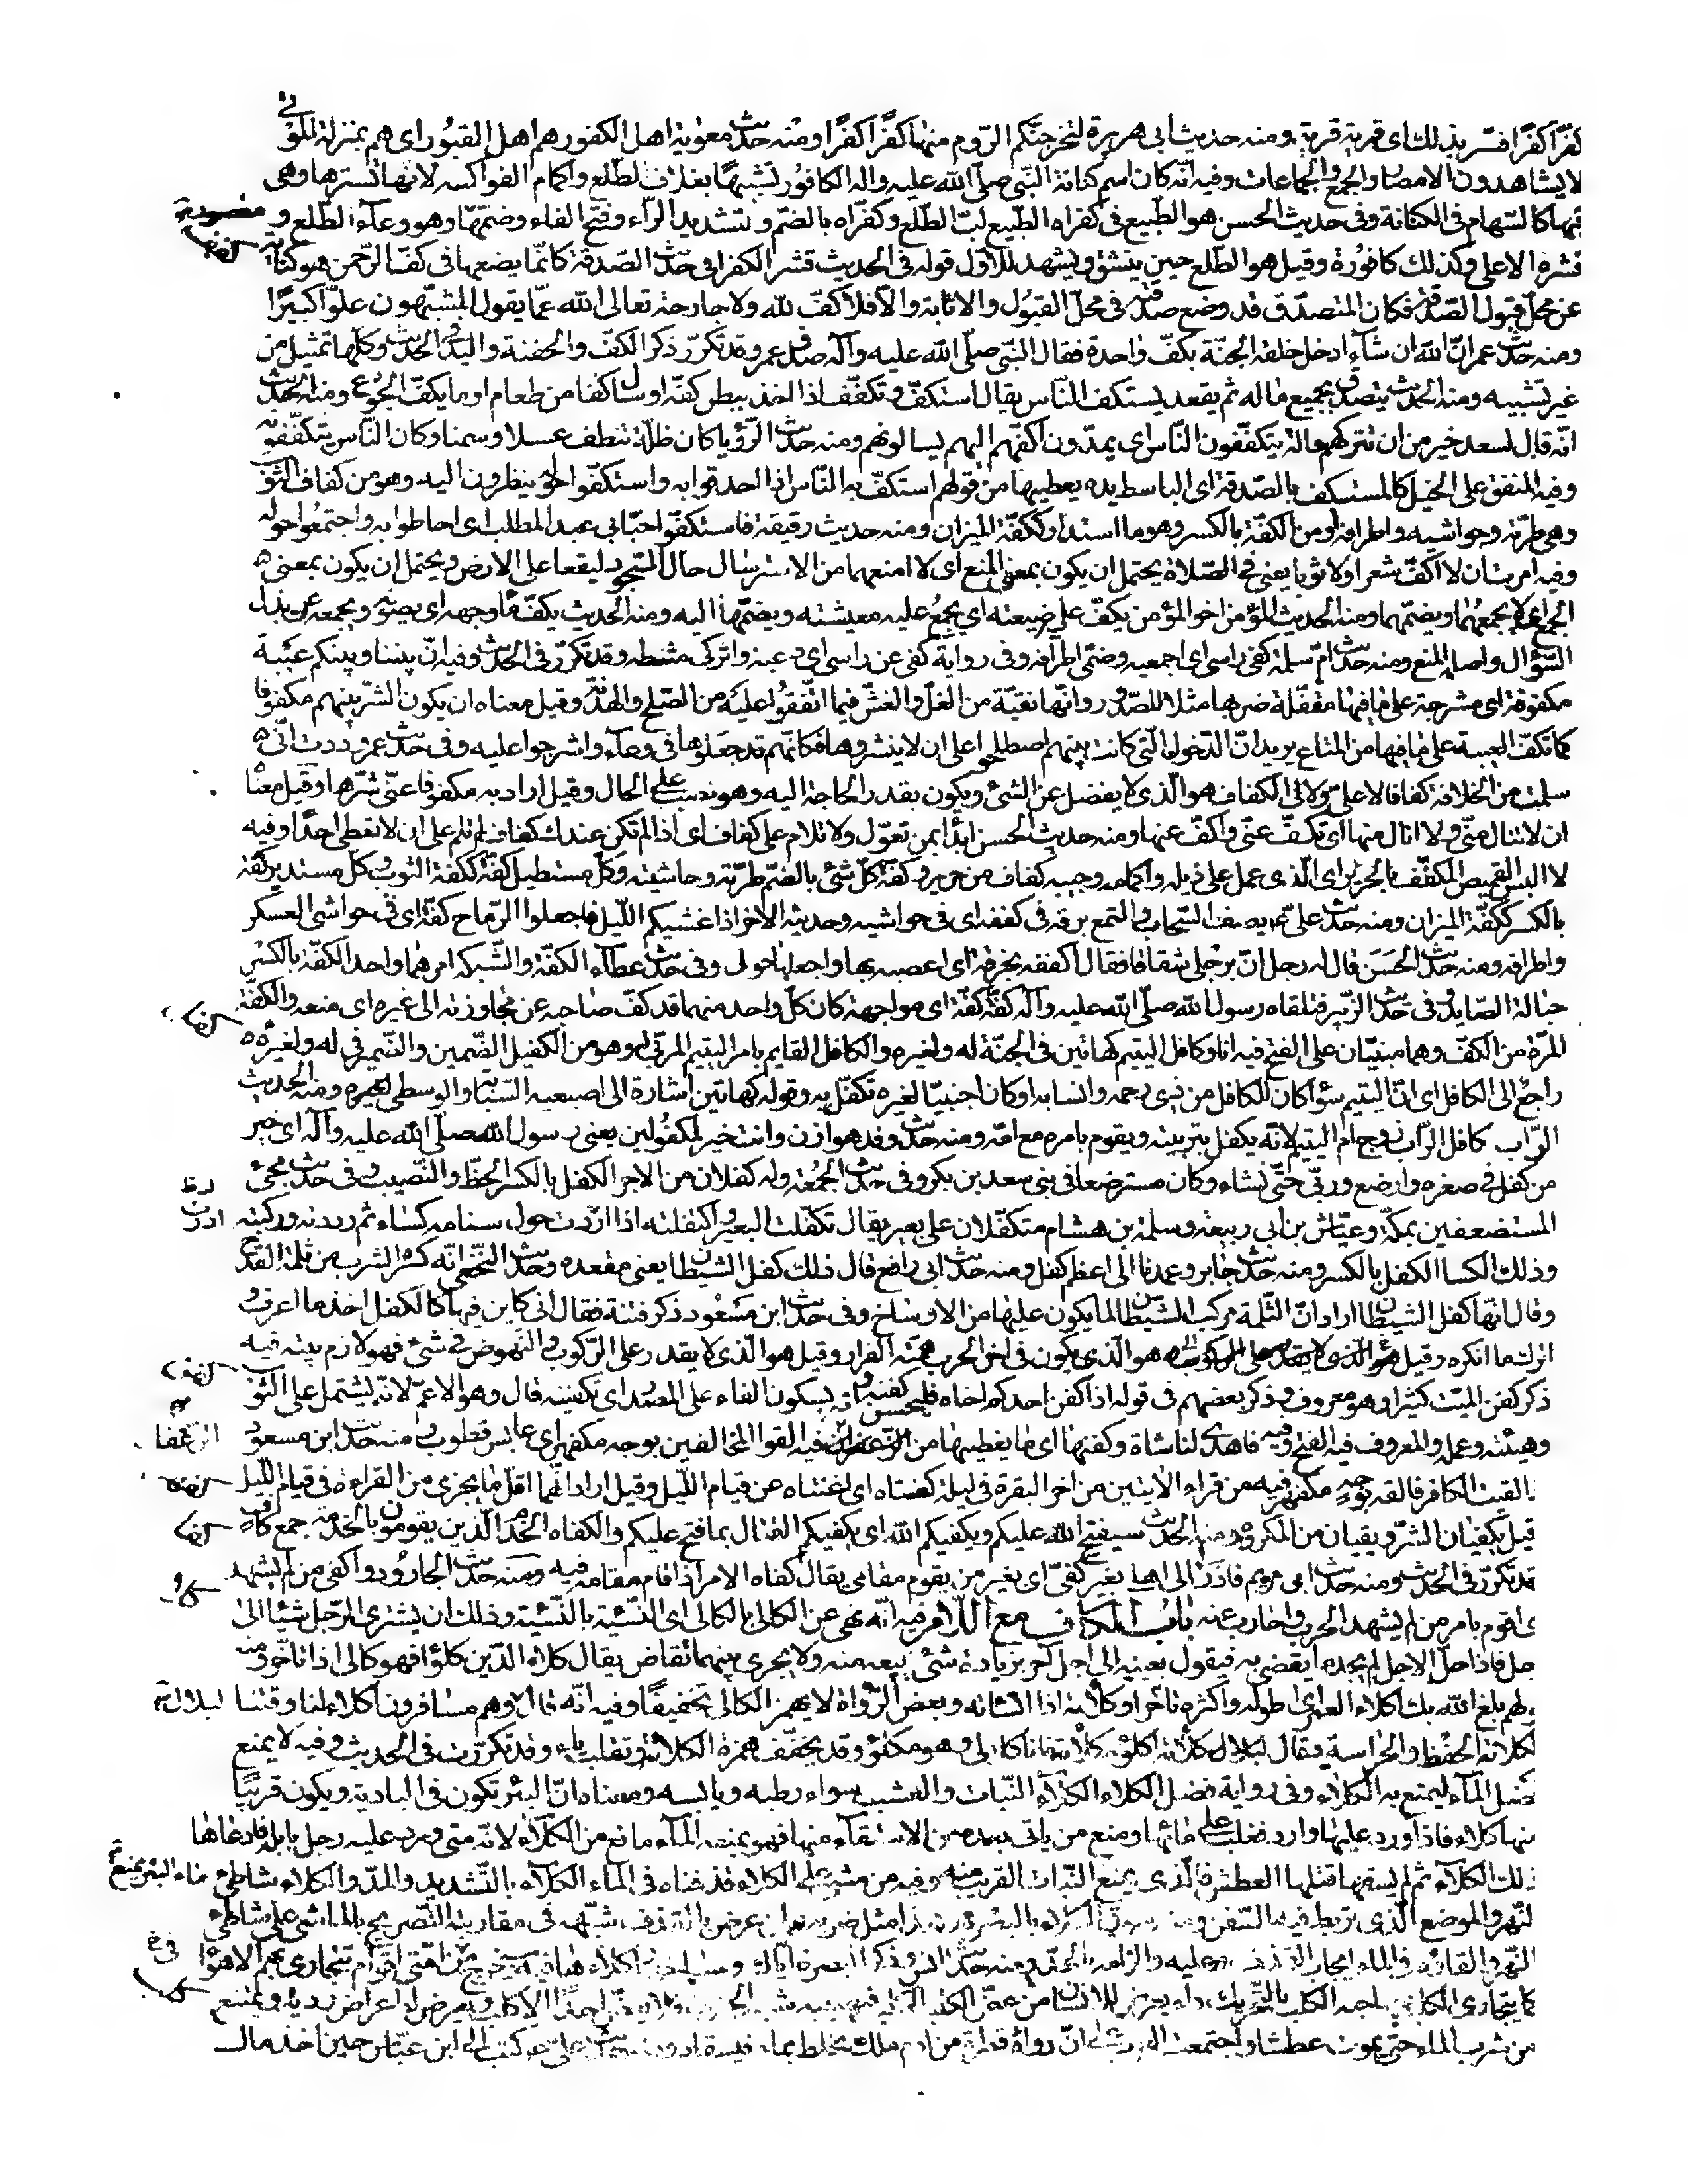 كفرا كفرا فسر بذلك اى قرية قرية ومنه حديث ابى هريرة لتخرجنكم الروم منها كفرا كفرا ومنه حديث معوية اهل الكفور هم اهل القبور اى هم بمنزلة الموتى
لا يشاهدون الامصار والجمع والجماعات وفيه انه كان اسم كنانة النبى صلى الله عليه واله الكافور تشبيها بغلاف الطلع واكمام الفواكه لانها تسترها وهى
فيها كالسهام فى الكنانة وفى حديث الحسن هو الطبيع فى كفراه الطبيع لب الطلع وكفراه بالضم وتشديد الراء وفتح الفاء وضمها وهو وعاء الطلع و
قشره الاعلى وكذلك كافوره وقيل هو الطلع حين ينشق ويشهد للاول قوله فى الحديث قشر الكفرى حديث الصدقة كانما يضعها فى كف الرحمن هو كناية
عن محل قبول الصدقة فكان المتصدق قد وضع صدقته فى محل القبول والاثابة والا فلا كف لله ولا جارحة تعالى الله عما يقول المشبهون علوا كبيرا
ومنه حديث عمر ان الله ان شاء ادخل خلقه الجنة بكف واحدة فقال النبى صلى الله عليه وآله صدق عمر وقد تكرر ذكر الكف والحفنة واليد فى الحديث وكلها تمثيل من
غير تشبيه ومنه الحديث يتصدق بجميع ماله ثم يقعد يستكف الناس يقال استكف وتكفف اذا اخذ ببطن كفه او سال كفا من طعام او ما يكف الجوع ومنه الحديث
انه قال لسعد خير من ان تتركهم عالة يتكففون الناس اى يمدون اكفهم اليهم يسالونهم ومنه حديث الرؤيا كان ظلة تنطف عسلا وسمنا وكان الناس يتكففونه
وفيه المنفق على الخيل كالمستكف بالصدقة اى الباسط يده يعطيها من قولهم استكف به الناس اذا احدقوا به واستكفوا حوله ينظرون اليه وهو من كفاف الثوب
وهى طرته وحواشيه واطرافه او من الكفة بالكسر وهو ما استدار ككفة الميزان ومنه حديث رقيقة فاستكفوا جنابى عبد المطلب اى احاطوا به واجتمعوا حوله
وفيه امرت ان لا اكف شعرا ولا ثوبا يعنى فى الصلاة يحتمل ان يكون بمعنى المنع اى لا امنعهما من الاسترسال حال السجود ليقعا على الارض ويحتمل ان يكون بمعنى
الجمع اى لا يجمعهما ويضمهما ومنه الحديث المؤمن اخو المؤمن يكف على ضيعته اى يجمع عليه معيشته ويضمها اليه ومنه الحديث يكف ماء وجهه اى يصونه ويجمعه عن بذل
السؤال واصله المنع ومنه حديث ام سلمة كفى راسى اى اجمعيه وضمى اطرافه وفى رواية كفى عن راسى اى دعيه واتركى مشطه وقد تكرر فى الحديث وفيه ان بيننا وبينكم عيبة
مكفوفة اى مشرجة على ما فيها مقفلة ضربها مثلا للصدور وانها نقية من الغل والغش فيما اتفقوا عليه من الصلح والهدنة وقيل معناه ان يكون الشر بينهم مكفوفا
كما تكف العيبة على ما فيها من المتاع يريد ان الذحول التى كانت بينهم اصطلحوا على ان لا ينشروها فكانهم قد جعلوها فى وعاء واشرجوا عليه وفى حديث عمر وددت انى
سلمت من الخلافة كفافا لا على ولا لى الكفاف هو الذى لا يفضل عن الشئ ويكون بقدر الحاجة اليه وهو نصب على الحال وقيل اراد به مكفوفا عنى شرها وقيل معناه
ان لا تنال منى ولا انال منها اى تكف عنى واكف عنها ومنه حديث الحسن ابدا بمن تعول ولا تلام على كفاف اى اذا لم تكن عندك كفاف لم تلم على ان لا تعطى احدا وفيه
لا البس القميص المكفف بالحرير اى الذى عمل على ذيله واكمامه وجيبه كفاف من حرير وكفة كل شئ بالضم طرته وحاشيته وكل مستطيل كفة ككفة الثوب وكل مستدير كفة
بالكسر ككفة الميزان ومنه حديث على يصف السحاب والتمع برقه فى كففه اى فى حواشيه وحديثه الاخر اذا غشيكم الليل فاجعلوا الرماح كفة اى فى حواشى العسكر
واطرافه ومنه حديث الحسن قال له رجل ان برجلى شقاقا فقال اكففه بخرقة اى اعصبه بها واجعلها حوله وفى حديث عطاء الكفة والشبكة امرهما واحد الكفة بالكسر
حبالة الصايد وفى حديث الزبير فتلقاه رسول الله صلى الله عليه وآله كفة كفة اى مواجهة كان كل واحد منهما قد كف صاحبه عن مجاوزته الى غيره اى منعه والكفة
المرة من الكف وهما مبنيان على الفتح فيه انا وكافل اليتيم كهاتين فى الجنة له ولغيره والكافل القايم بامر اليتيم المربى له وهو من الكفيل الضمين والضمير فى له ولغيره
راجع الى الكافل اى ان اليتيم سواء كان الكافل من ذوى رحمه وانسابه او كان اجنبيا لغيره تكفل به وقوله كهاتين اشارة الى اصبعيه السبابة والوسطى لغيره ومنه الحديث
الراب كافل الراب زوج ام اليتيم لانه يكفل بتربيته ويقوم بامره مع امه ومنه حديث وفد هوازن وانت خير المكفولين يعنى رسول الله صلى الله عليه وآله اى خير
من كفل فى صغره وارضع وربى حتى نشاء وكان مسترضعا فى بنى سعد بن بكر وفى حديث الجمعة وله كفلان من الاجر الكفل بالكسر الحظ والنصيب وفى حديث مجئ
المستضعفين بمكة وعياش بن ابى ربيعة وسلمة بن هشام متكفلان على بعير يقال تكفلت البعير واكتفلته اذا ادرت حول سنامه كساء ثم ردته وركبته
وذلك الكسا الكفل بالكسر ومنه حديث جابر وعمدنا الى اعظم كفل ومنه حديث ابى رافع قال ذلك كفل الشيطان يعنى مقعده وحديث النخعى انه كره الشرب من ثلمة القدح
وقال انها كفل الشيطان اراد ان الثلمة مركب الشيطان لما يكون عليها من الاوساخ وفى حديث ابن مسعود ذكر فتنة فقال انى كاين فيها كالكفل اخذ ما اعرف و
اترك ما انكره وقيل هو الذى يكون فى اخر الحرب همته الفرار وقيل هو الذى لا يقدر على الركوب والنهوض فى شئ فهو لازم بيته فيه
ذكر كفن الميت كثيرا وهو معروف وذكر بعضهم فى قوله اذا كفن احدكم اخاه فليحسن كفنه انه بسكون الفاء على المصدر اى تكفينه قال وهو الاعم لانه يشتمل على الثوب
وهيئته وعمله والمعروف فيه الفتح وفيه فاهدى لنا شاة وكفنها اى ما يغطيها من فيه القوا المخالفين بوجه مكفهر اى عابس قطوب ومنه حديث ابن مسعود
اذا لقيت الكافر فالقه بوجه مكفهر فيه من قراء الايتين من اخر البقرة فى ليلة كفتاه اى اغنتاه عن قيام الليل وقيل اراد انهما اقل ما يجزى من القراءة فى قيام الليل
قيل يكفيان الشر ويقيان من المكروه ومنه الحديث سيفتح الله عليكم ويكفيكم الله اى يكفيكم القتال بما فتح عليكم والكفاه الخدم الذين يقومون بالخدمة جمع كاف
قد تكرر فى الحديث ومنه حديث ابى مريم فاذن الى اهلى بغير كفى اى بغير من يقوم مقامى يقال كفاه الامر اذا قام مقامه فيه ومنه حديث الجارود واكفى من لم يشهد
اى اقوم بامر من لم يشهد الحرب واحارب عنه باب الكاف مع اللام فيه انه نهى عن الكالى بالكالى اى النسئية بالنسئية وذلك ان يشترى الرجل شيئا الى
اجل فاذا حل الاجل لم يجد ما يقضى به فيقول بعينه الى اجل اخر بزيادة شئ يبيعه منه ولا يجرى بينهما تقابض يقال كلاء الدين كلؤا فهو كالى اذا تاخر ومنه
قولهم بلغ الله بك اكلاء العمر اى اطوله واكثره تاخرا وكلأته اذا انسأته وبعض الرواة لا يهمز الكالى تخفيفا وفيه انه قال وهم مسافرون اكلاء لنا وقتنا
الكلائة الحفظ والحراسة يقال كلأته اكلؤه كلائة فانا كالى وهو مكلؤ وقد يخفف همزة الكلائة وتقلب ياء وقد تكررت فى الحديث وفيه لا يمنع
فضل الماء ليمنع به الكلاء وفى رواية فضل الكلاء الكلاء النبات والعشب سواء رطبه ويابسه ومعناه ان البئر تكون فى البادية ويكون قريبا
منها كلاء فاذا ورد عليها وارد فغلب على مائها ومنع من ياتى بعده من الاستقاء منها فهو بمنعه الماء مانع من الكلاء لانه متى ورد عليه رجل بابله فارعاها
ذلك الكلاء ثم لم يسقها قتلها العطش فالذى يمنع ماء البئر يمنع النبات القريب منه وفيه من مشى على الكلاء قذفناه فى الماء الكلاء بالتشديد والمد والكلاء شاطئ
النهر والموضع الذى تربط فيه السفن ومنه سوق الكلاء بالبصرة وهذا مثل ضربه لمن عرض بالقذف شبهه فى مقاربته التصريح بالماشى على شاطئ
النهر والقاؤه فى الماء ايجاب القذف عليه والزامه بالحد ومنه حديث انس وذكر البصرة اياك وسباخها وكلاءها فيه سيخرج فى امتى اقوام تتجارى بهم الاهواء
كما يتجارى الكلب بصاحبه الكلب بالتحريك داء يعرض للانسان من عض الكلب الكلب فيصيبه شبه الجنون فلا يعض احدا الا كلب ويعرض له اعراض ردية ويمتنع
من شرب الماء حتى يموت عطشا واجتمعت العرب على ان دواؤه قطرة من دم ملك يخلط بماء فيسقاه ومنه حديث على كتب الى ابن عباس حين اخذ مال